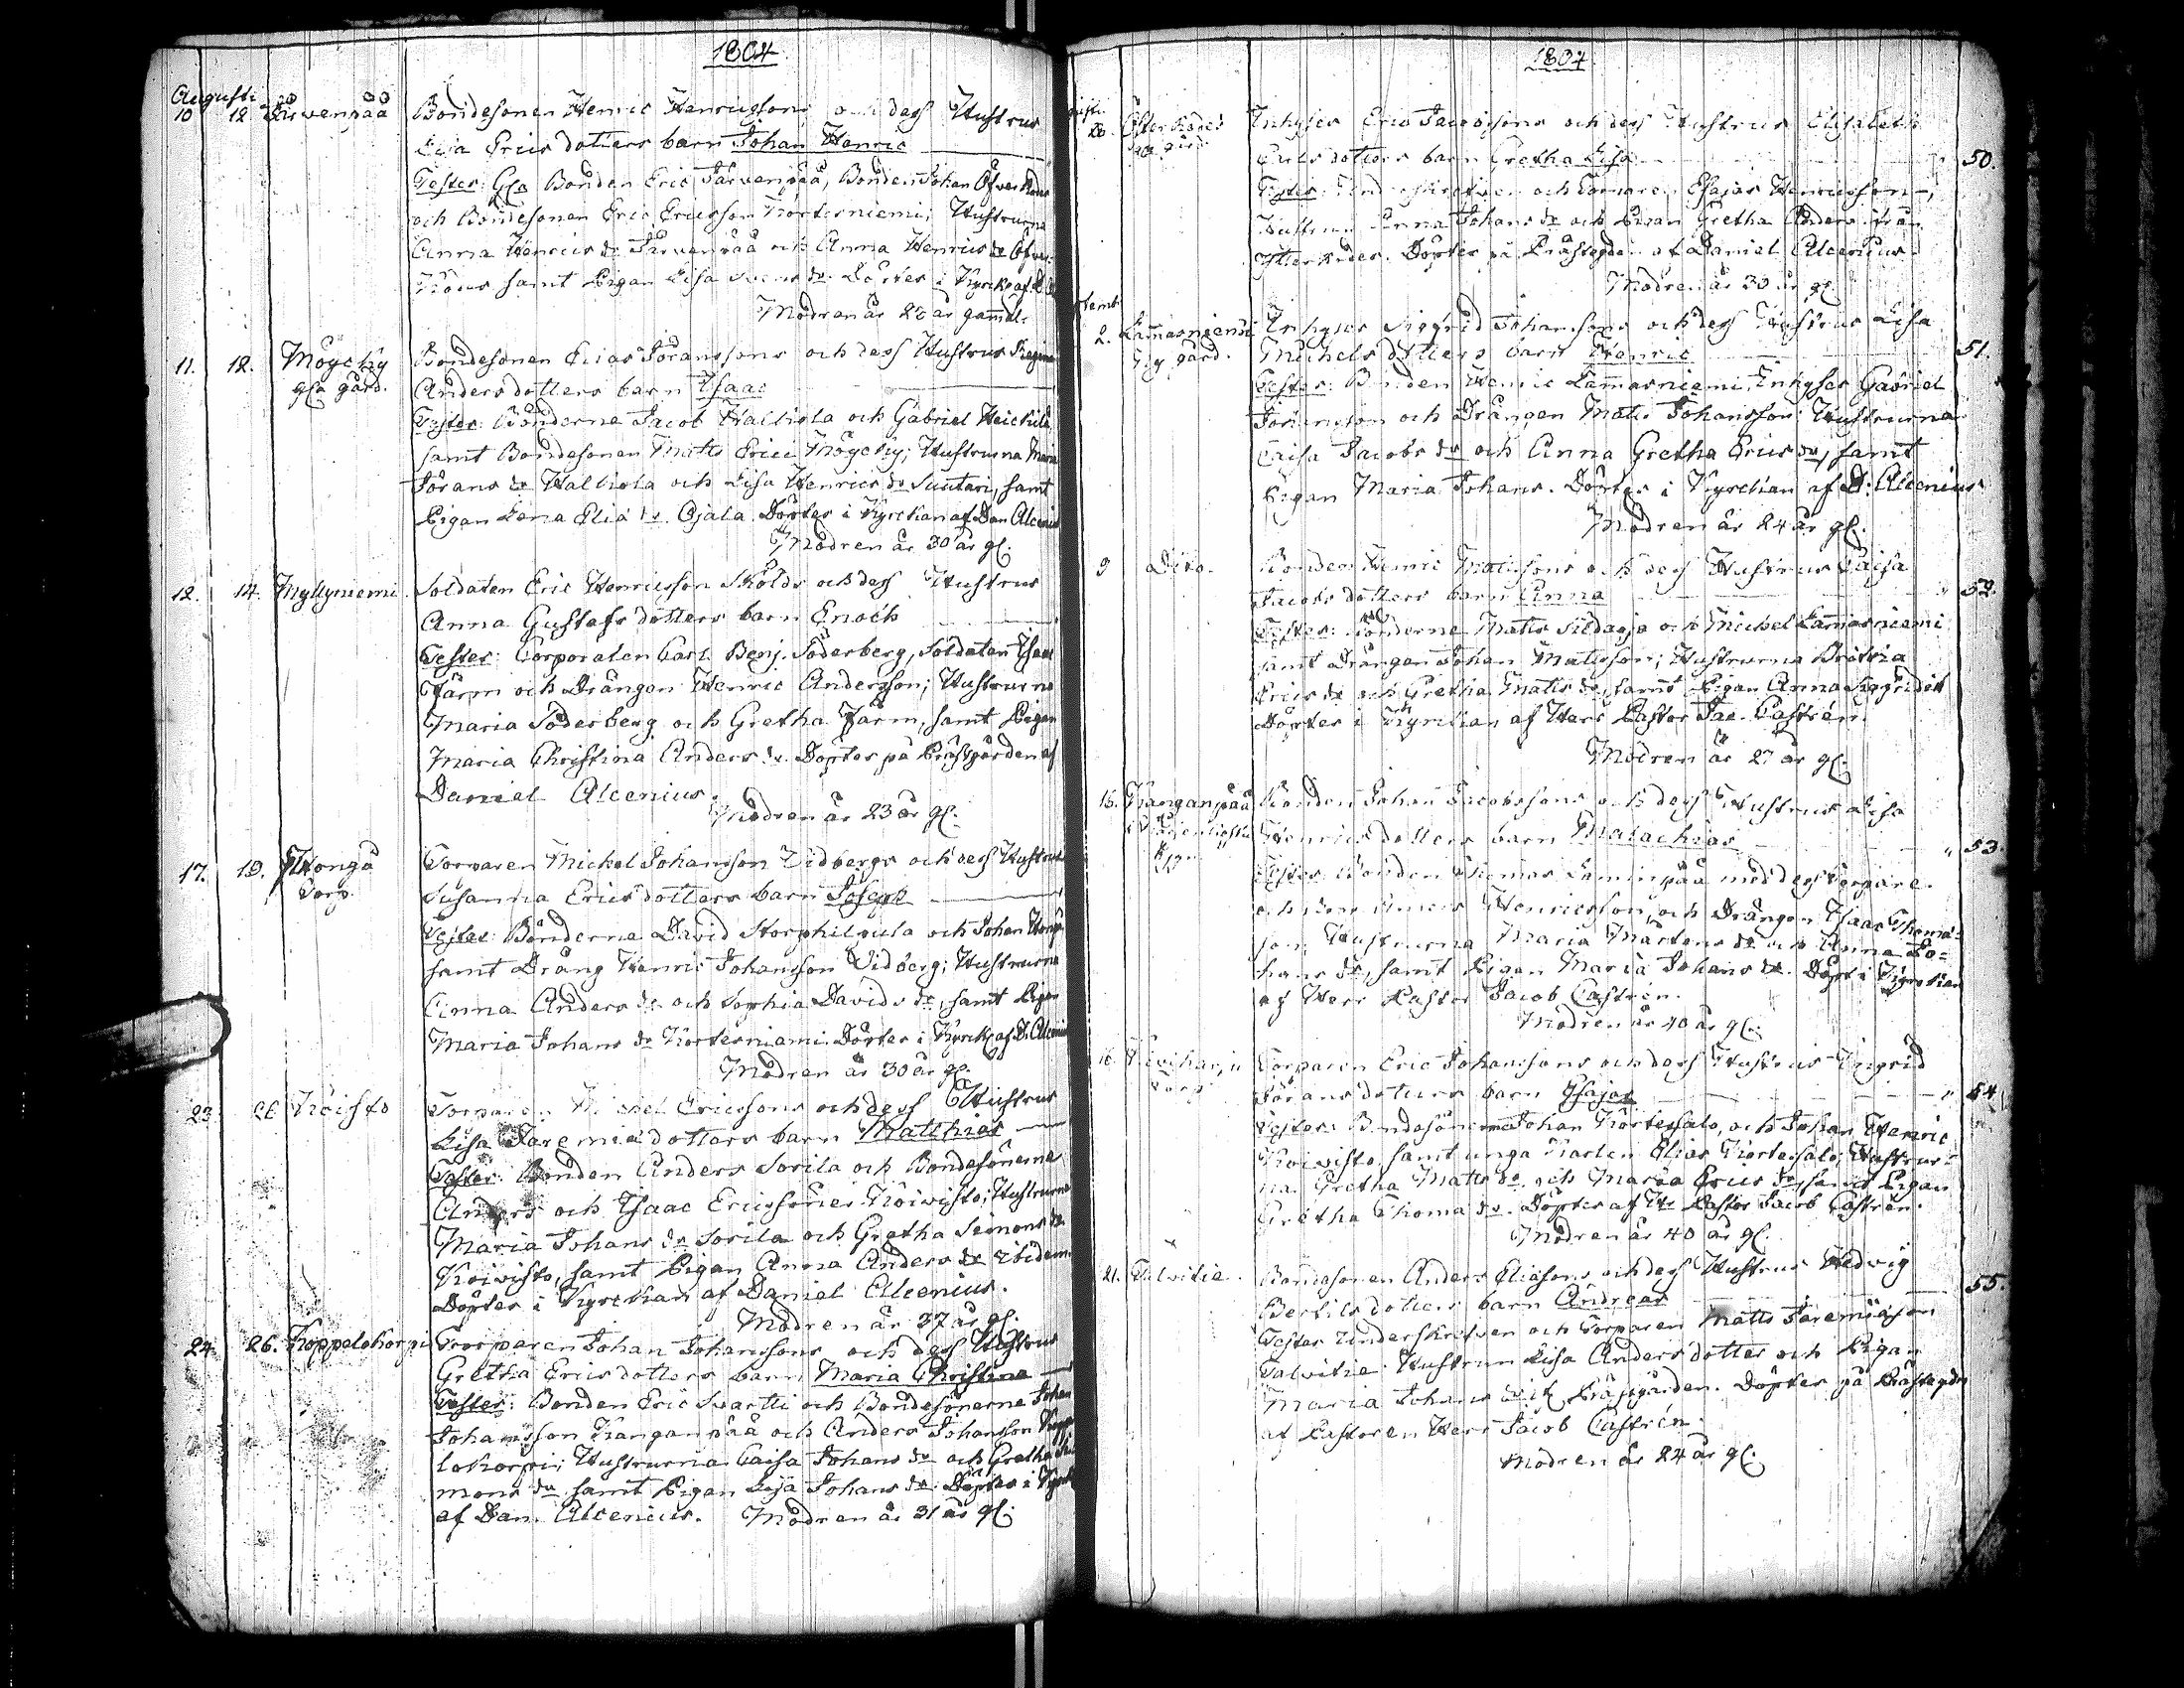 1804
Augusti
10 12 Järvenpää Bondesonen Henric Henricssons och dess Hustrus
Lisa Erics dotters barn Johan Henric
Testes: Gla Bonden Eric Järvenpää, Bonden Johan Öfver
och Bondesonen Eric Ericsson Kortesniemi; Hustrurna
Anna Henrics dr Järvenpää och Anna Henrics dr Öfver
samt Pigan Lisa dr. Döptes i Kyrck. af D.
Modren är 26 år gammal.
11. 12. Mögeky Bondesonen Elias Jöranssons och dess Hustrus Regina
gla gård. Anders dotters barn Isaac
Testes: Bönderne Jacob Walliola och Gabriel Heickilä
samt Bondesonen Matts Erics Mögeky; Hustrurna Maria
Jörans dr Walliola och Lisa Henrics dr Suutari, samt
Pigan Lena Eliæ dr. Ojala. Döptes i Kyrckan af Dan Alcenius
Modren är 30 år gl.
12. 14. Myllyniemi Soldaten Eric Henricsson Skölds och dess Hustrus
Anna Gustafs dotters barn Enoch
Testes: Corporalen Carl Benj. Söderberg, Soldaten Isaac
Järm och Drängen Henric Andersson; Hustrurna
Maria Söderberg och Gretha Järm, samt Pigan
Maria Christina Anders dr. Döptes på Prästgården af
Daniel Alcenius.
Modren är 23 år gl.
17. 19. Honga Torparen Michel Johansson Vidbergs och dess Hustrus
Torp. Susanna Erics dotters barn Joseph
Testes: Bönderne David Storphilpula och Johan
samt Dräng Henric Johansson Vidberg; Hustrurna
Anna Anders dr och Sophia Davids dr, samt Pigan
Maria Johans dr Kortesniemi. Döptes i Kyrck. af D. Alcenius
Modren är 30 år gl.
23. 26 Koisto Torparen Michel Ericssons och dess Hustrus
Lisa Jeremiæ dotters barn Matthias
Testes: Bonden Anders Sorila och Bondesönerne
Anders och Isaac Ericssöner Koivisto; Hustrurna
Maria Johans dr Sorila och Gretha Simons dr
Koivisto, samt Pigan Anna Anders dr ibidem.
Döptes i Kyrckan af Daniel Alcenius.
Modren är 37 år gl.
24. 26. Koppelokorpi Torparen Johan Johanssons och dess Hustrus
Gretha Erics dotters barn Maria Christina
Testes: Bonden Eric Svartti och Bondesönerne Johan
Johansson Kanganpää och Anders Johansson Koppe
lokorpi; Hustrurna Caisa Johans dr och Gretha Si
mons dr samt Pigan Lisa Johans dr. Döptes i Kyrck
af Dan. Alcenius. Modren är 31 år gl.
1804
26. Inhyses Eric Jacobssons och dess Hustrus Elisabeth
Carls dotters barn Gretha Lisa 50.
Testes: och Tomaren Esajas Henricsson,
Hustrun Anna Johans dr och Pigan Gretha Anders från
Döptes på Prästegden af Daniel Alcenius.
Modren är 30 år gl.
2. Lamasniemi Inhyses Sigfrid Johanssons och dess Hustrus Lisa
gård. Michels dotters barn Henric 51.
Testes: Bonden Henric Lamasniemi, Inhyses Gabriel
Johansson och Drängen Matts Johansson; Hustrurna
Caisa Jacobs dr och Anna Gretha Erics dr, samt
Pigan Maria Johans. Döptes i Kyrckan af D: Alcenius
Modren är 24 år gl.
9 Dito. Bonden Henric Matssons och dess Hustrus Caisa
Jacobs dotters barn Anna 52.
Testes: Bönderne Matts Sildaoja och Michel Lamasniemi
samt Drängen Johan Mattsson; Hustrurna Britha
Erics dr och Gretha Matts dr, samt Pigan Anna Sigfrids dr
Döptes i Kyrckan af Herr Pastor Jac. Castrén.
Modren är 27 år gl.
15. Kanganpää Bonden Johan Jacobssons och dess Hustrus Lisa
Henrics dotters barn Malachias 53.
Testes: Bonden Thomas Laminpää med dess Torpare
Henricsson, och Drängen Isaac Thoma
son Hustrurna Maria Mårtens dr och Anna Jo=
hans dr, samt Pigan Maria Johans dr. Döpt i Kyrckan
af Herr Pastor Jacob Castrén.
Modren är 40 år gl.
16. Torparen Eric Johanssons och dess Hustrus Ingrid
Torp Jörans dotters barn Esajas 54
Testes: Bondesönerne Johan Kortessalo, och Johan Henric
Koivisto, samt unga Karlen Elias Kortessalo, Hustrur=
na Gretha Matts dr och Maria Erics dr, samt Pigan
Gretha Thomæ dr. Döptes af Hr Pastor Jacob Castrén.
Modren är 40 år gl.
21. Talvitie. Bondesonen Anders Eliæsons och dess Hustrus Hedvig
Bertils dotters barn Andreas 55
Testes Underskrefven och Torparen Matts Jeremiæson
Talvitie. Hustrun Lisa Anders dotter och Pigan
Maria Johans vid Prästgården. Döptes på Prästegdn
af Pastoren Herr Jacob Castrén.
Modren är 24 år gl.